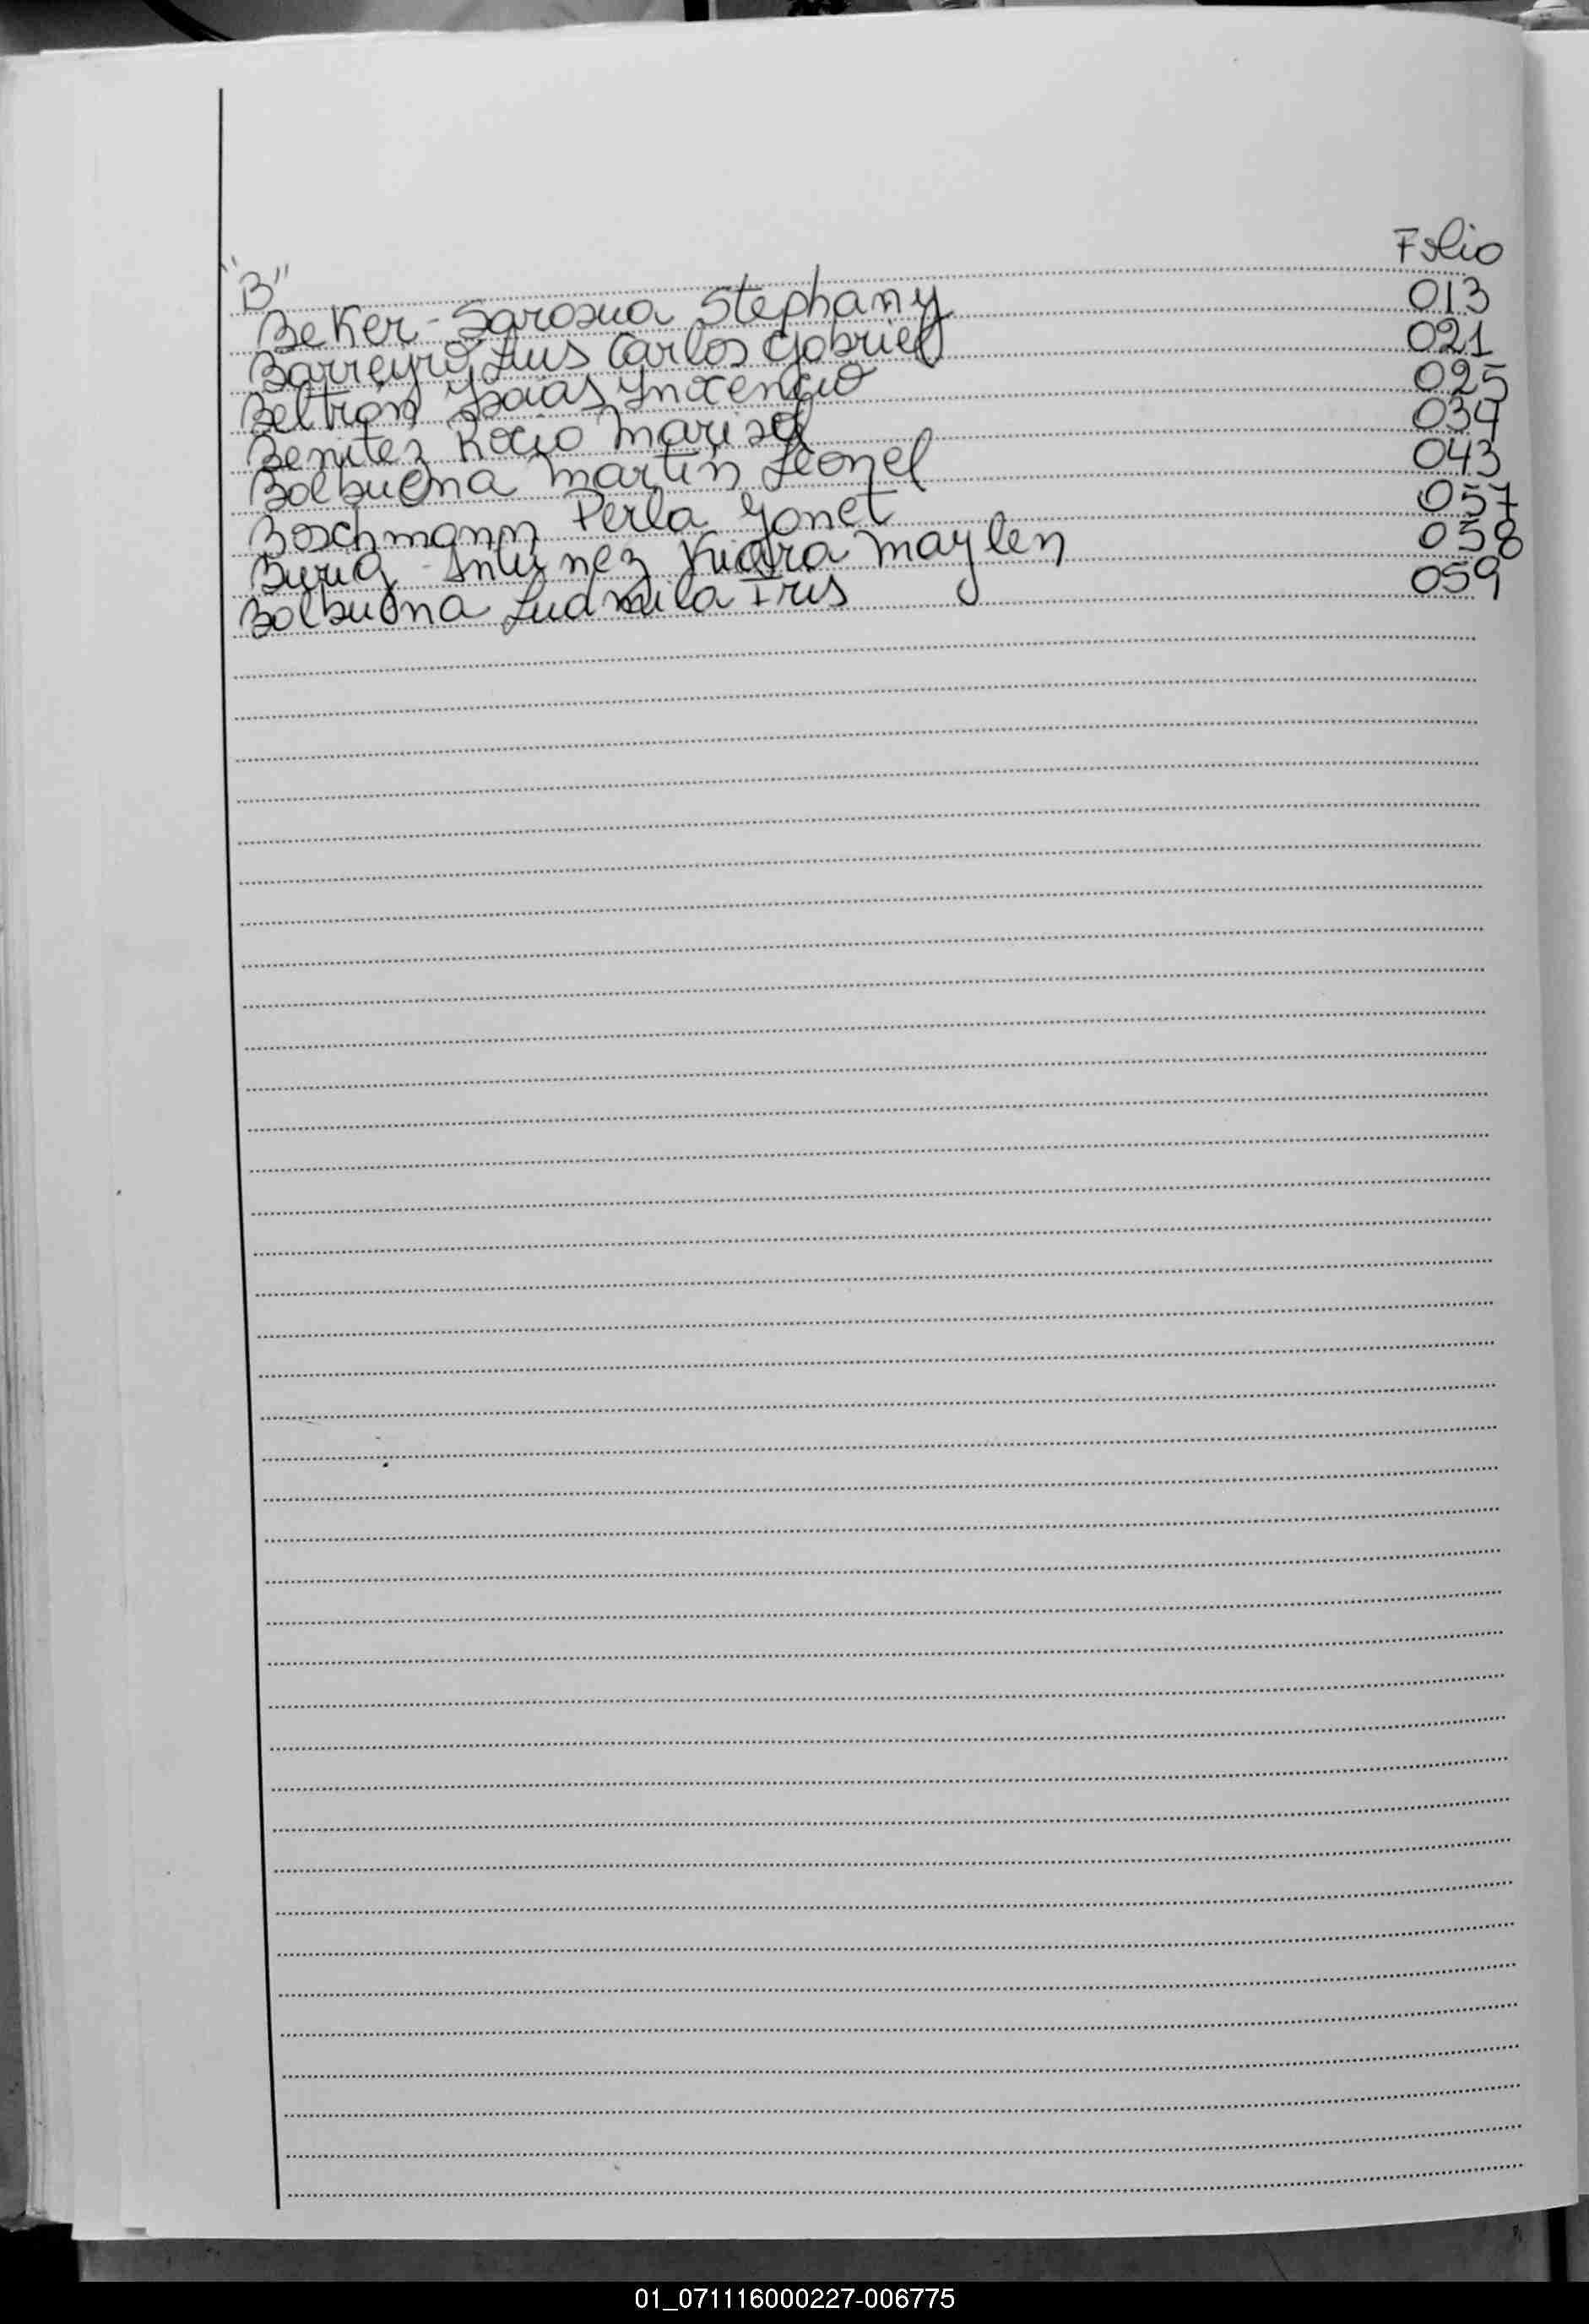 "B" Folio
Beker - Sarosua Stephany 013
Barreyro Luis Carlos Gabriel 021
Beltrán Isaias Inocencio 025
Benitez Rocio Marisol 034
Balbuena Martín Leonel 043
Boschmann Perla Yanet 057
Buriq - Antunez Kiara Maylen 058
Balbuena Ludmila Iris 059
01_071116000227-006775